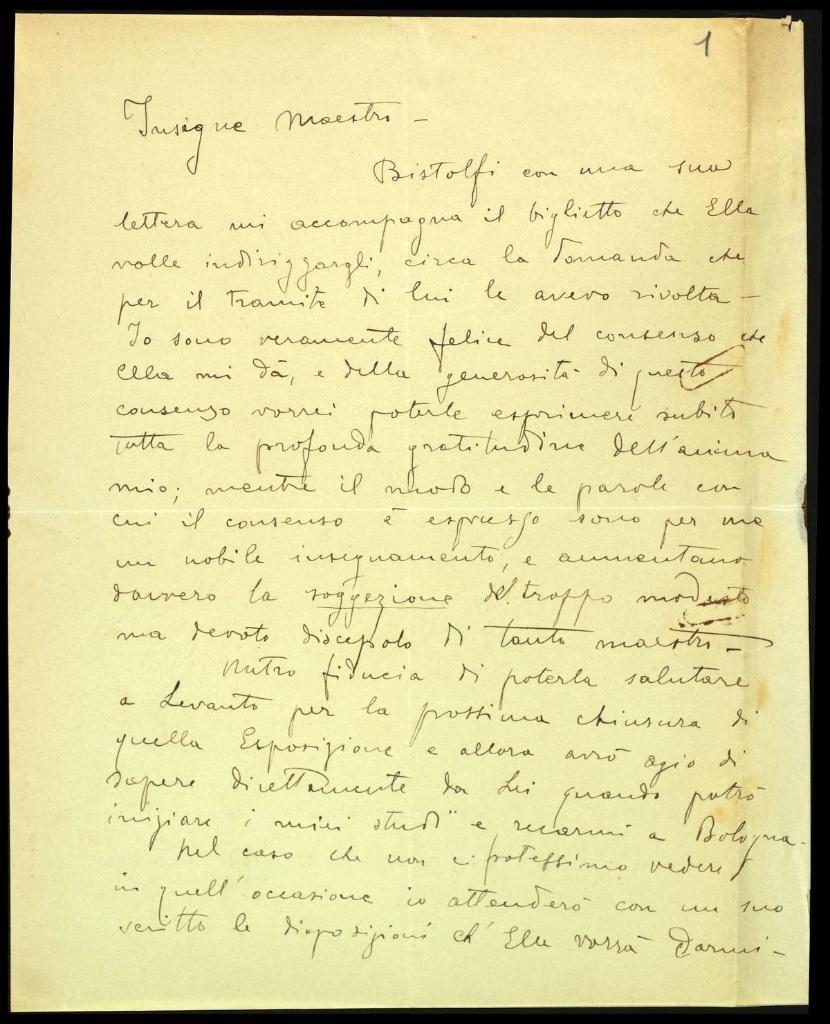 1
Insigne Maestro -
Bistolfi con una sua
lettera mi accompagna il biglietto che Ella
volle indirizzargli, circa la domanda che
per il tramite di lui le avevo rivolta -
Io sono veramente felice del consenso che
Ella mi dà, e della generosità di questo
consenso vorrei poterle esprimere subito
tutta la profonda gratitudine dell'animo
mio; mentre il modo e le parole con
cui il consenso è espresso sono per me
un nobile insegnamento, e aumentano
davvero la soggezione del troppo modesto
ma devoto discepolo di tanto maestro -
Nutro fiducia di poterla salutare
a Levanto per la prossima chiusura di
quella Esposizione e allora avrò agio di
sapere direttamente da Lei quando potrò
iniziare i miei studi e recarmi a Bologna -
Nel caso che non ci potessimo vedere
in quell'occasione io attenderò con un suo
scritto le disposizioni ch'Ella vorrà darmi -